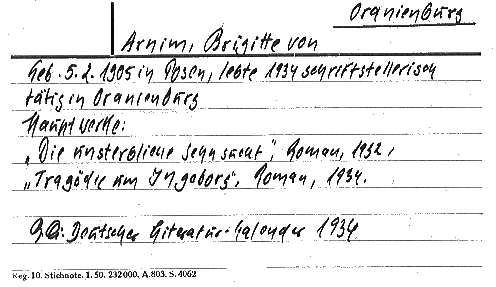 Oranienburg
Arnim, Brigitte von
Geb. 5.2.1905 in Posen, lebte 1934 schriftstellerisch
tätig in Oranienburg
Hauptwerke:
„Die unsterbliche Sehnsucht", Roman, 1932,
„Tragödie um Ingeborg", Roman, 1934.
Qu: Deutscher Literatur-Kalender 1934
Reg. 10. Stichnote. I. 50. 232000. A. 803. S. 4062